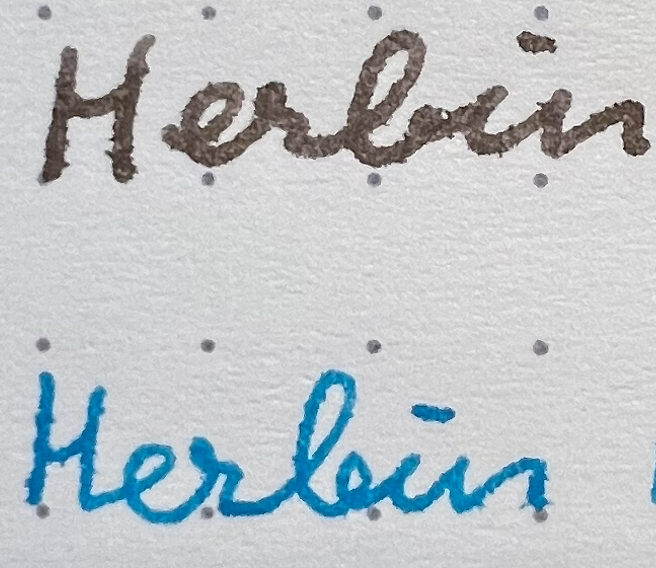 Herbin
Herbin